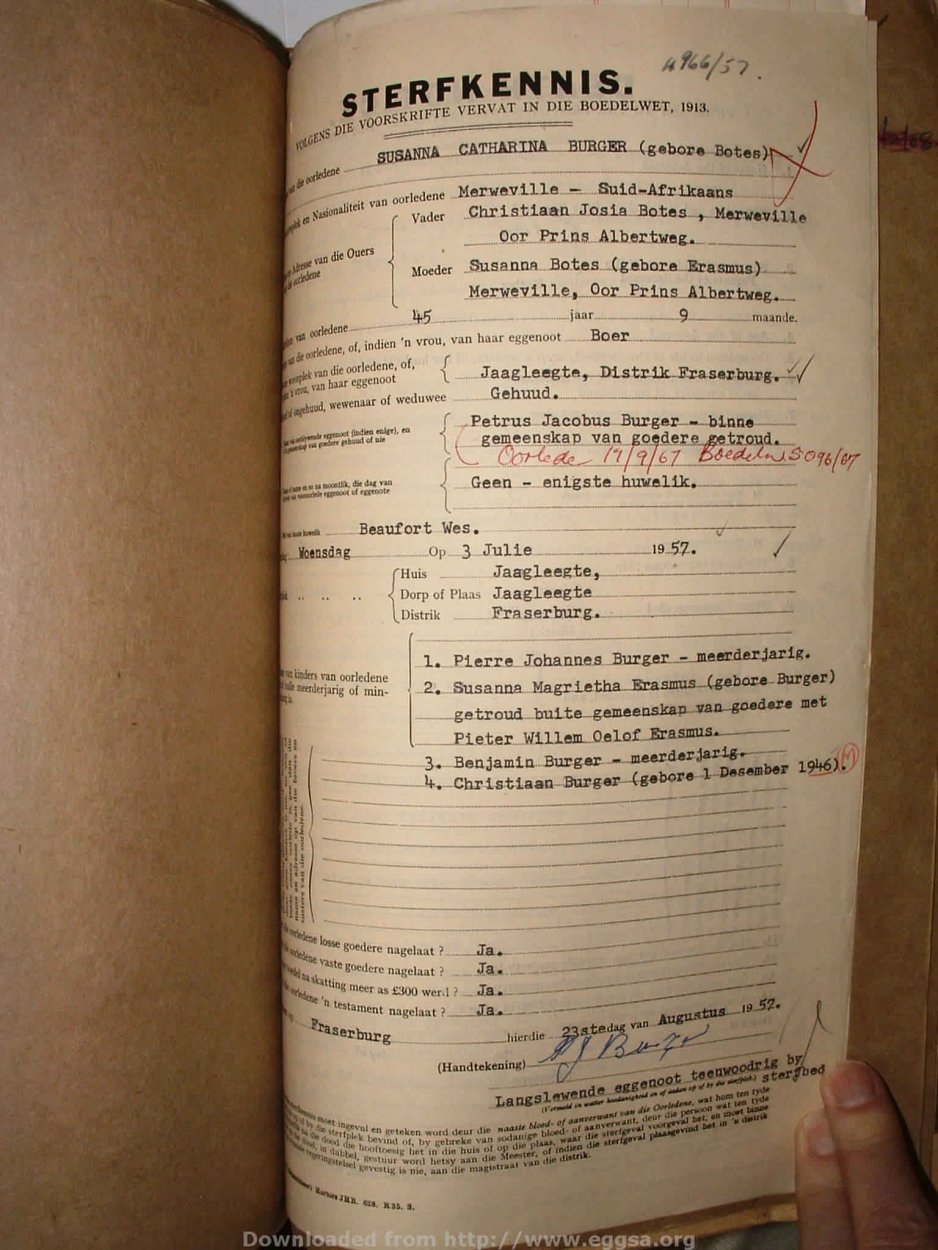 4966/57.
STERFKENNIS.
VOLGENS DIE VOORSKRIFTE VERVAT IN DIE BOEDELWET, 1913.
van die oorledene SUSANNA CATHARINA BURGER (gebore Botes)
en Nasionaliteit van oorledene Merweville - Suid-Afrikaans
Vader Christiaan Josia Botes , Merweville
Oor Prins Albertweg.
Adresse van die Ouers
oorledene
Moeder Susanna Botes (gebore Erasmus)
Merweville, Oor Prins Albertweg.
van oorledene 45 jaar 9 maande.
van die oorledene, of, indien 'n vrou, van haar eggenoot Boer
van die oorledene, of,
'n vrou, van haar eggenoot
Jaagleegte, Distrik Fraserburg.
of ongehuud, wewenaar of weduwee Gehuud.
eggenoot (indien enige), en
gemeenskap van goedere gehuud of nie
Petrus Jacobus Burger - binne
gemeenskap van goedere getroud.
Oorlede 19/9/67 5096/67
moontlik, die dag van
eggenoot of eggenote
Geen - enigste huwelik.
Beaufort Wes.
Woensdag Op 3 Julie 1957.
Huis Jaagleegte,
Dorp of Plaas Jaagleegte
Distrik Fraserburg.
van kinders van oorledene
meerderjarig of min-
1. Pierre Johannes Burger - meerderjarig.
2. Susanna Magrietha Erasmus (gebore Burger)
getroud buite gemeenskap van goedere met
Pieter Willem Oelof Erasmus.
3. Benjamin Burger - meerderjarig.
4. Christiaan Burger (gebore 1 Desember 1946). M
oorledene losse goedere nagelaat ? Ja.
oorledene vaste goedere nagelaat ? Ja.
boedel na skatting meer as £300 werd ? Ja.
oorledene 'n testament nagelaat ? Ja.
Fraserburg hierdie 23ste dag van Augustus 1957.
(Handtekening) PJ Burger
Langslewende eggenoot teenwoodrig by
sterfbed
moet ingevul en geteken word deur die naaste bloed- of aanverwant van die Oorledene, wat hom ten tyde
die sterfplek bevind of, by gebreke van sodanige bloed- of aanverwant, deur die persoon wat ten tyde
die dood die hooftoesig het in die huis of op die plaas, waar die sterfgeval voorgeval het, en moet binne
in dubbel, gestuur word hetsy aan die Meester, of indien die sterfgeval plaasgevind het in 'n distrik
gevestig is nie, aan die magistraat van die distrik.
Downloaded from http://www.eggsa.org